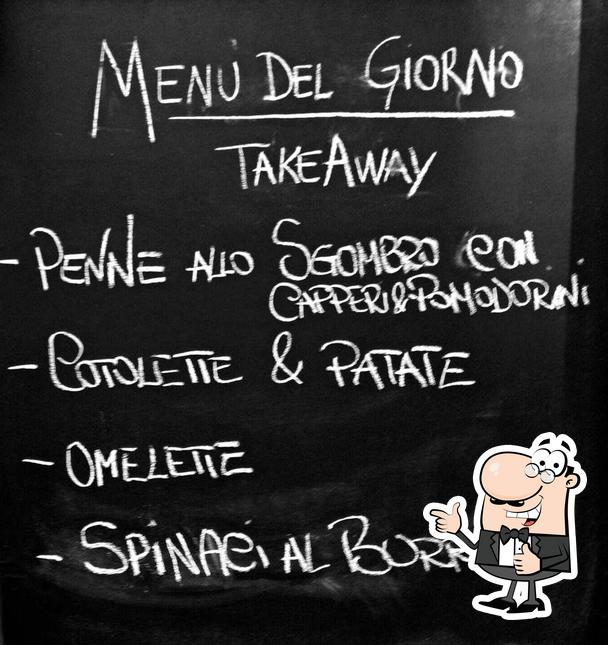 MENÙ DEL GIORNO
TAKEAWAY
- PENNE ALLO SGOMBRO CON
CAPPERI & POMODORINI
- COTOLETTE & PATATE
- OMELETTE
- SPINACI AL BURR